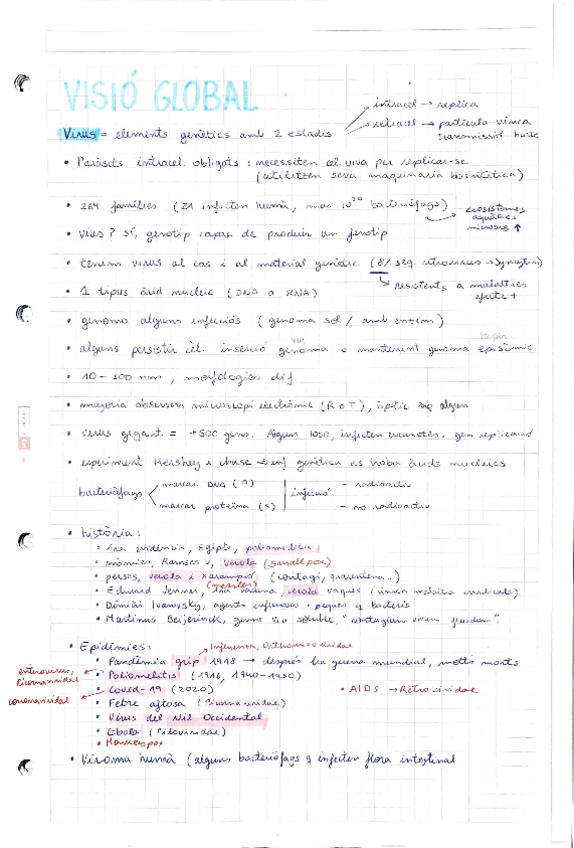 VISIÓ GLOBAL
intracel → replica
Virus = elements genètics amb 2 estadis
extracel → partícula vírica
transmissió hoste
• Paràsits intracel. obligats : necessiten cèl. viva per replicar-se
(utilitzen seva maquinària biosintètica)
• 264 famílies (21 infecten humà, mar bacteriòfags)
ecosistemes
aquàtics
• virus? sí, genotip capaç de produir un fenotip
• tenim virus al cos i al material genètic (8% seq. retrovirus →
resistents a malalties
efecte +
• 1 tipus àcid nucleic (DNA o RNA)
• genoma alguns infecciós (genoma sol / amb enzim)
• alguns persistir cèl. inserció genoma o manteniment genoma episòmic
• 10-300 nm, morfologies dif
• majoria observen microscopi electrònic (R o T), òptic algun
• virus gegant = +500 gens. Algun 1000, infecten eucariotes, gen
• experiment Hershey i Chase → inf genètica es troba àcids nucleics
bacteriòfags
marcar DNA (P)
marcar proteïna (S)
infecció
- radioactiu
- no radioactiu
• història:
• 1ra evidència, Egipte, poliomelitis
• mòmies, Ramses V, verola (smallpox)
• perses, verola i xarampió (contagi, quarentena..)
(measles)
• Edward Jenner, 1ra vacuna, verola vaques (única malaltia erradicada)
• Dimitri Ivanovsky, agents infecciosos + petits q bacteris
• Martinus Beijerinck, germe viu soluble, "contagium vivum fluidum"
• Epidèmies:
Influenza, Orthomixoviridae
• Pandèmia grip 1918 → després 1ra guerra mundial, molts morts
enterovirus,
Picornaviridae
• Poliomelitis (1916, 1940-1950)
coronaviridae
• Covid-19 (2020)
• AIDS → Retroviridae
• Febre aftosa (Picornaviridae)
• Virus del Nil Occidental
• Ebola (Filoviridae)
• Monkeypox
• Viroma humà (alguns bacteriòfags q infecten flora intestinal